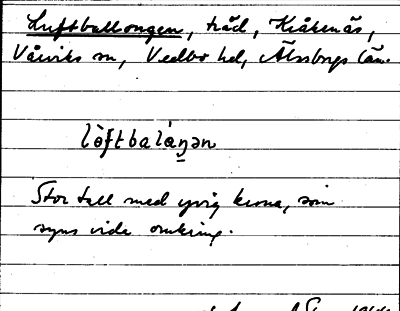 Luftballongen, träd, Kråkenäs,
Vårviks sn, Vedbo hd, Älvsborgs län.
lo̊ftbalaŋən
Stor tall med yvig krona, som
syns vida omkring.